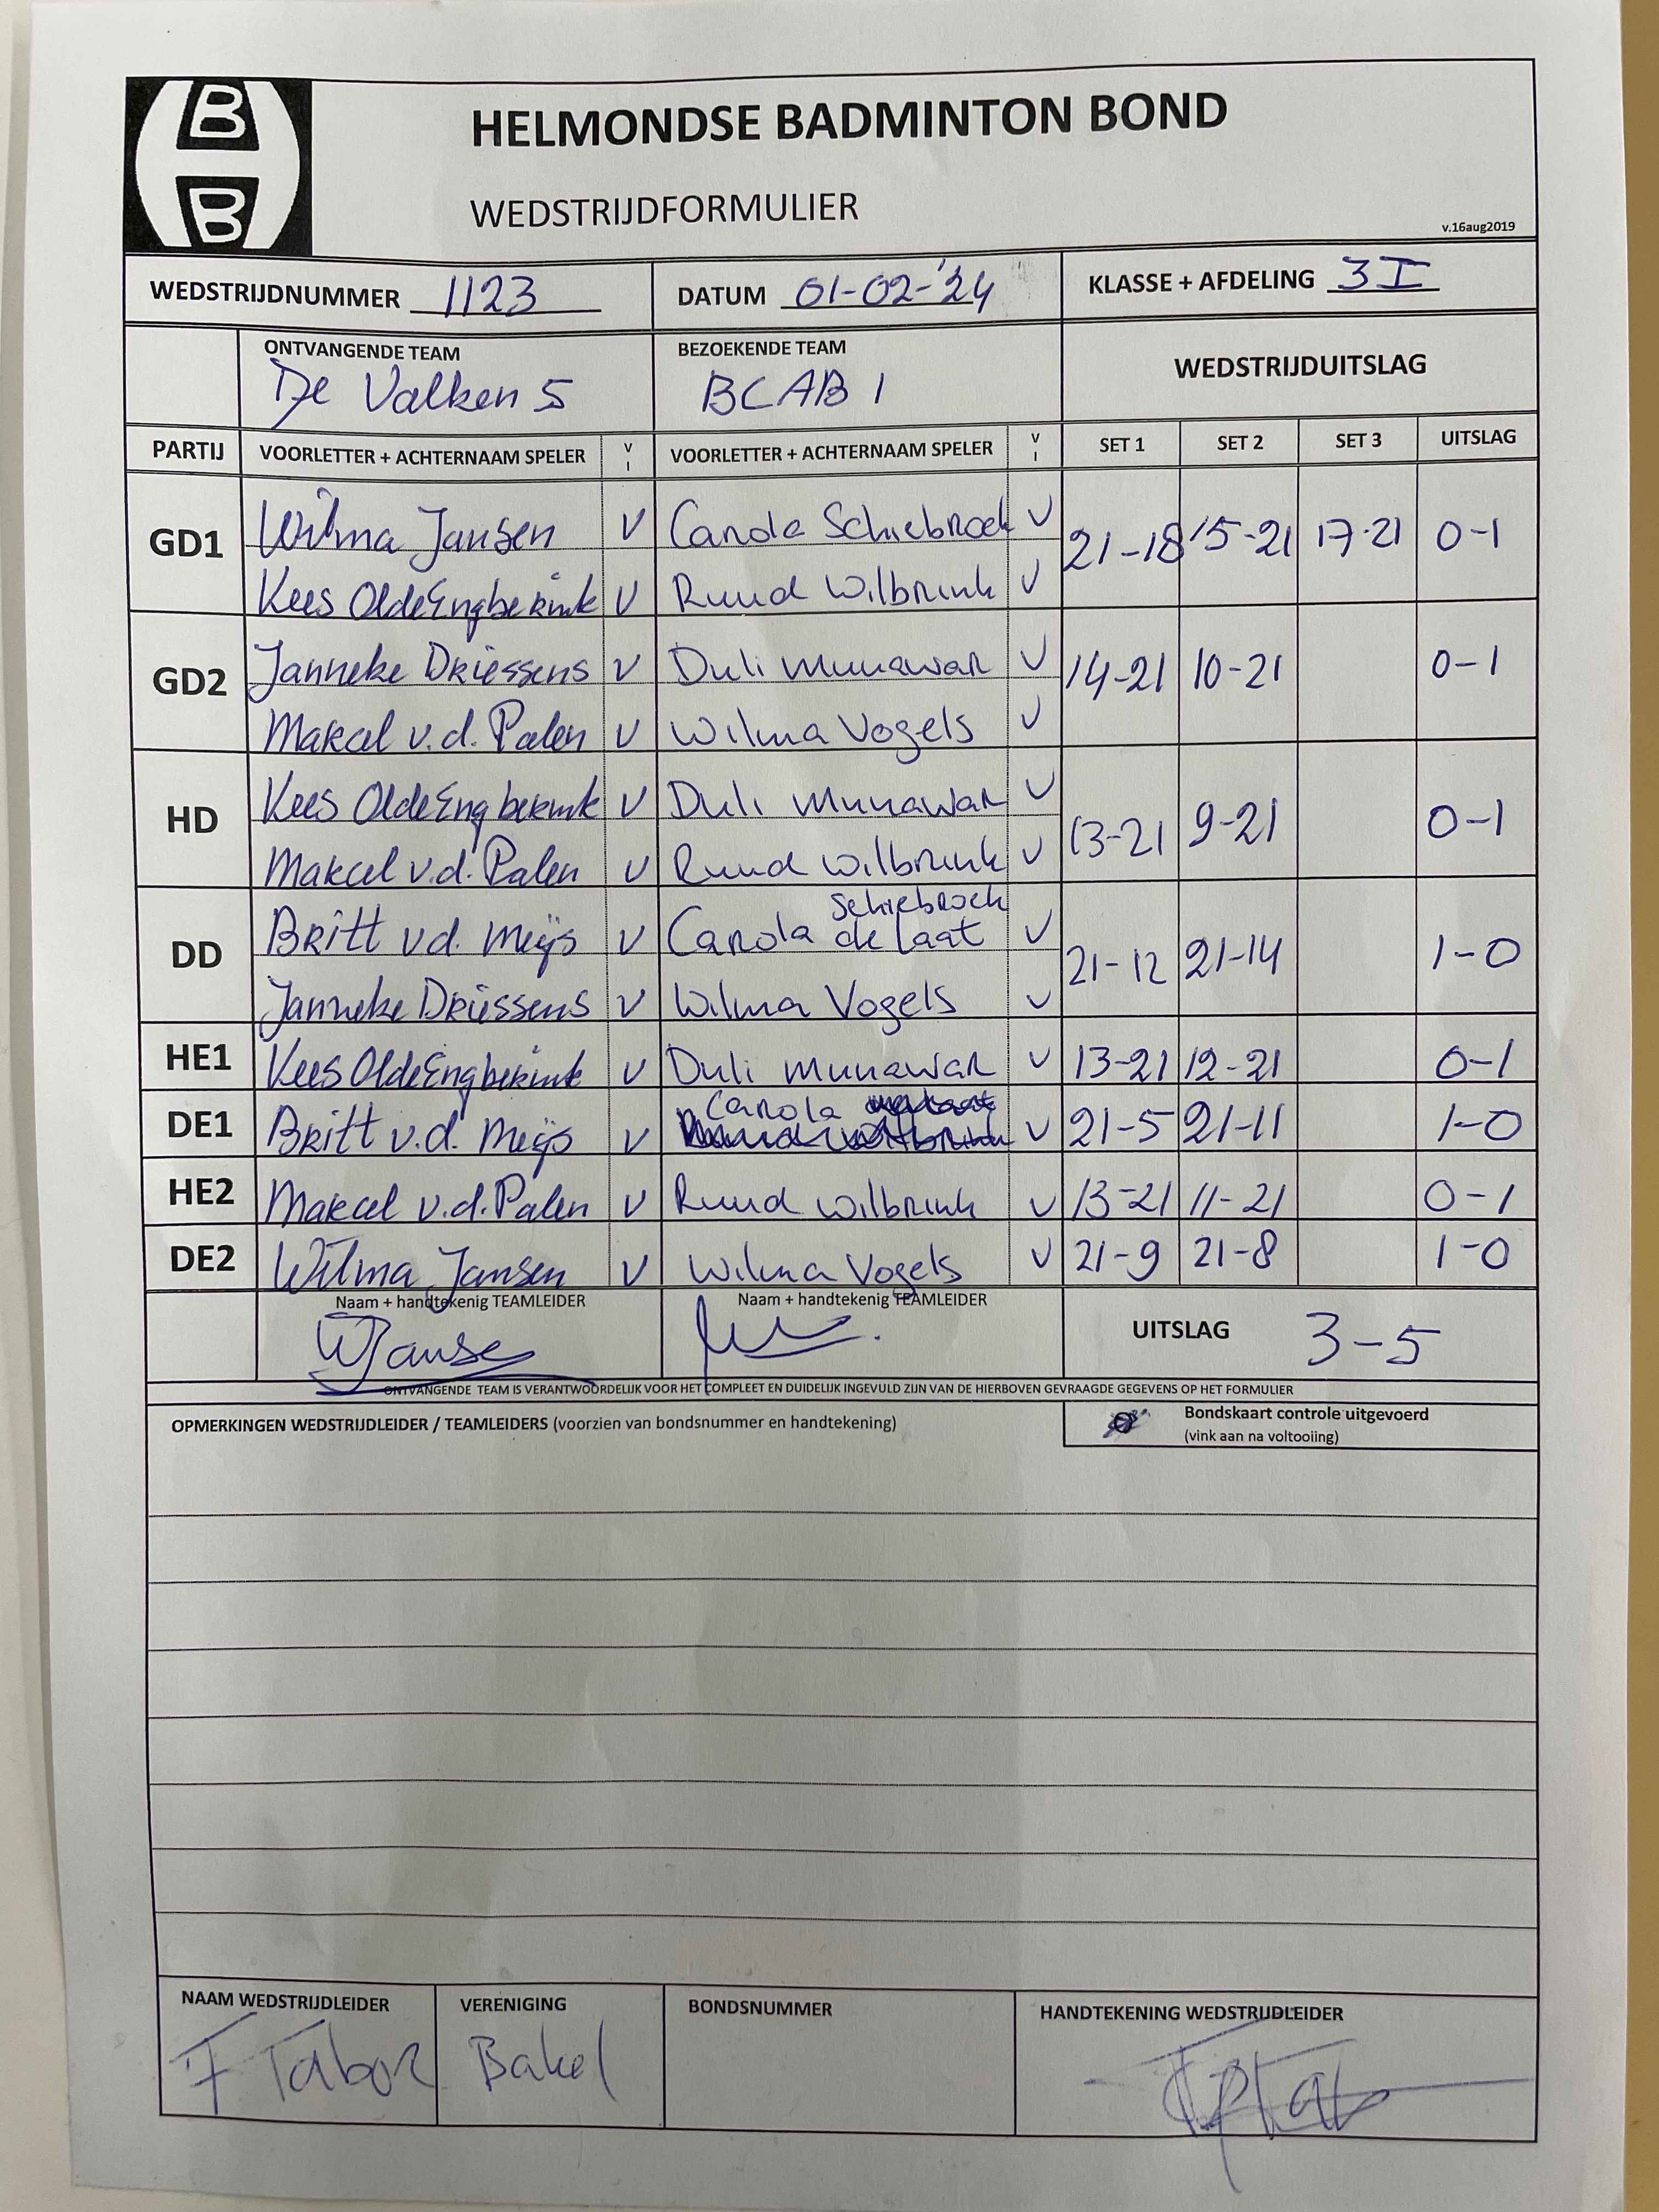 B
B
HELMONDSE BADMINTON BOND
WEDSTRIJDFORMULIER
v.16aug2019
WEDSTRIJDNUMMER 1123 DATUM 01-02-'24 KLASSE + AFDELING 3I
ONTVANGENDE TEAM BEZOEKENDE TEAM WEDSTRIJDUITSLAG
De Valken 5 BCAB 1
PARTIJ VOORLETTER + ACHTERNAAM SPELER V I VOORLETTER + ACHTERNAAM SPELER V I SET 1 SET 2 SET 3 UITSLAG
GD1 Wilma Jansen V Carola Schiebroek V 21-18 15-21 17-21 0-1
Kees OldeEngberink V Ruud Wilbrink V
GD2 Janneke Driessens V Duli Munawar V 14-21 10-21 0-1
Marcel v.d. Palen V Wilma Vogels V
HD Kees OldeEngberink V Duli Munawar V 13-21 9-21 0-1
Marcel v.d. Palen V Ruud Wilbrink V
Schiebroek
DD Britt v.d. Meijs V Carola de Laat V 21-12 21-14 1-0
Janneke Driessens V Wilma Vogels V
HE1 Kees OldeEngberink V Duli Munawar V 13-21 12-21 0-1
DE1 Britt v.d. Meijs V Carola V 21-5 21-11 1-0
HE2 Marcel v.d. Palen V Ruud Wilbrink V 13-21 11-21 0-1
DE2 Wilma Jansen V Wilma Vogels V 21-9 21-8 1-0
Naam + handtekenig TEAMLEIDER Naam + handtekenig TEAMLEIDER
WJansen UITSLAG 3-5
ONTVANGENDE TEAM IS VERANTWOORDELIJK VOOR HET COMPLEET EN DUIDELIJK INGEVULD ZIJN VAN DE HIERBOVEN GEVRAAGDE GEGEVENS OP HET FORMULIER
OPMERKINGEN WEDSTRIJDLEIDER / TEAMLEIDERS (voorzien van bondsnummer en handtekening) Bondskaart controle uitgevoerd
(vink aan na voltooiing)
NAAM WEDSTRIJDLEIDER VERENIGING BONDSNUMMER HANDTEKENING WEDSTRIJDLEIDER
F Tabor Bakel